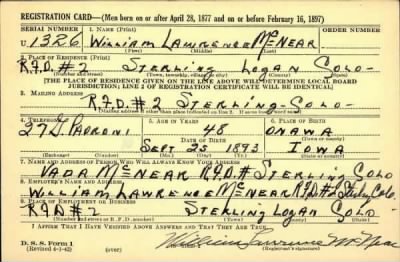 REGISTRATION CARD—(Men born on or after April 28, 1877 and on or before February 16, 1897)
SERIAL NUMBER 1. NAME (Print) ORDER NUMBER
U 1326 WILLIAM LAWRENCE McNEAR
(First) (Middle) (Last)
2. PLACE OF RESIDENCE (Print)
R.F.D. #2 STERLING LOGAN COLO-
(Number and street) (Town, township, village, or city) (County) (State)
[THE PLACE OF RESIDENCE GIVEN ON THE LINE ABOVE WILL DETERMINE LOCAL BOARD
JURISDICTION; LINE 2 OF REGISTRATION CERTIFICATE WILL BE IDENTICAL]
3. MAILING ADDRESS
R.F.D. #2 STERLING-COLO-
4. TELEPHONE 5. AGE IN YEARS 6. PLACE OF BIRTH
PADRONI 48 ONAWA
DATE OF BIRTH (Town or county)
SEPT 25 1893 IOWA
(Mo.) (Day) (Yr.) (State or country)
7. NAME AND ADDRESS OF PERSON WHO WILL ALWAYS KNOW YOUR ADDRESS
VADA McNEAR R.F.D # STERLING COLO
8. EMPLOYER'S NAME AND ADDRESS
WILLIAM LAWRENCE McNEAR R.F.D #2 Colo
9. PLACE OF EMPLOYMENT OR BUSINESS
R.F.D #2 STERLING LOGAN COLO-
(Number and street or R. F. D. number) (Town) (County) (State)
I AFFIRM THAT I HAVE VERIFIED ABOVE ANSWERS AND THAT THEY ARE TRUE.
D. S. S. Form 1
(Revised 4-1-42) (over) William Lawrence McNear